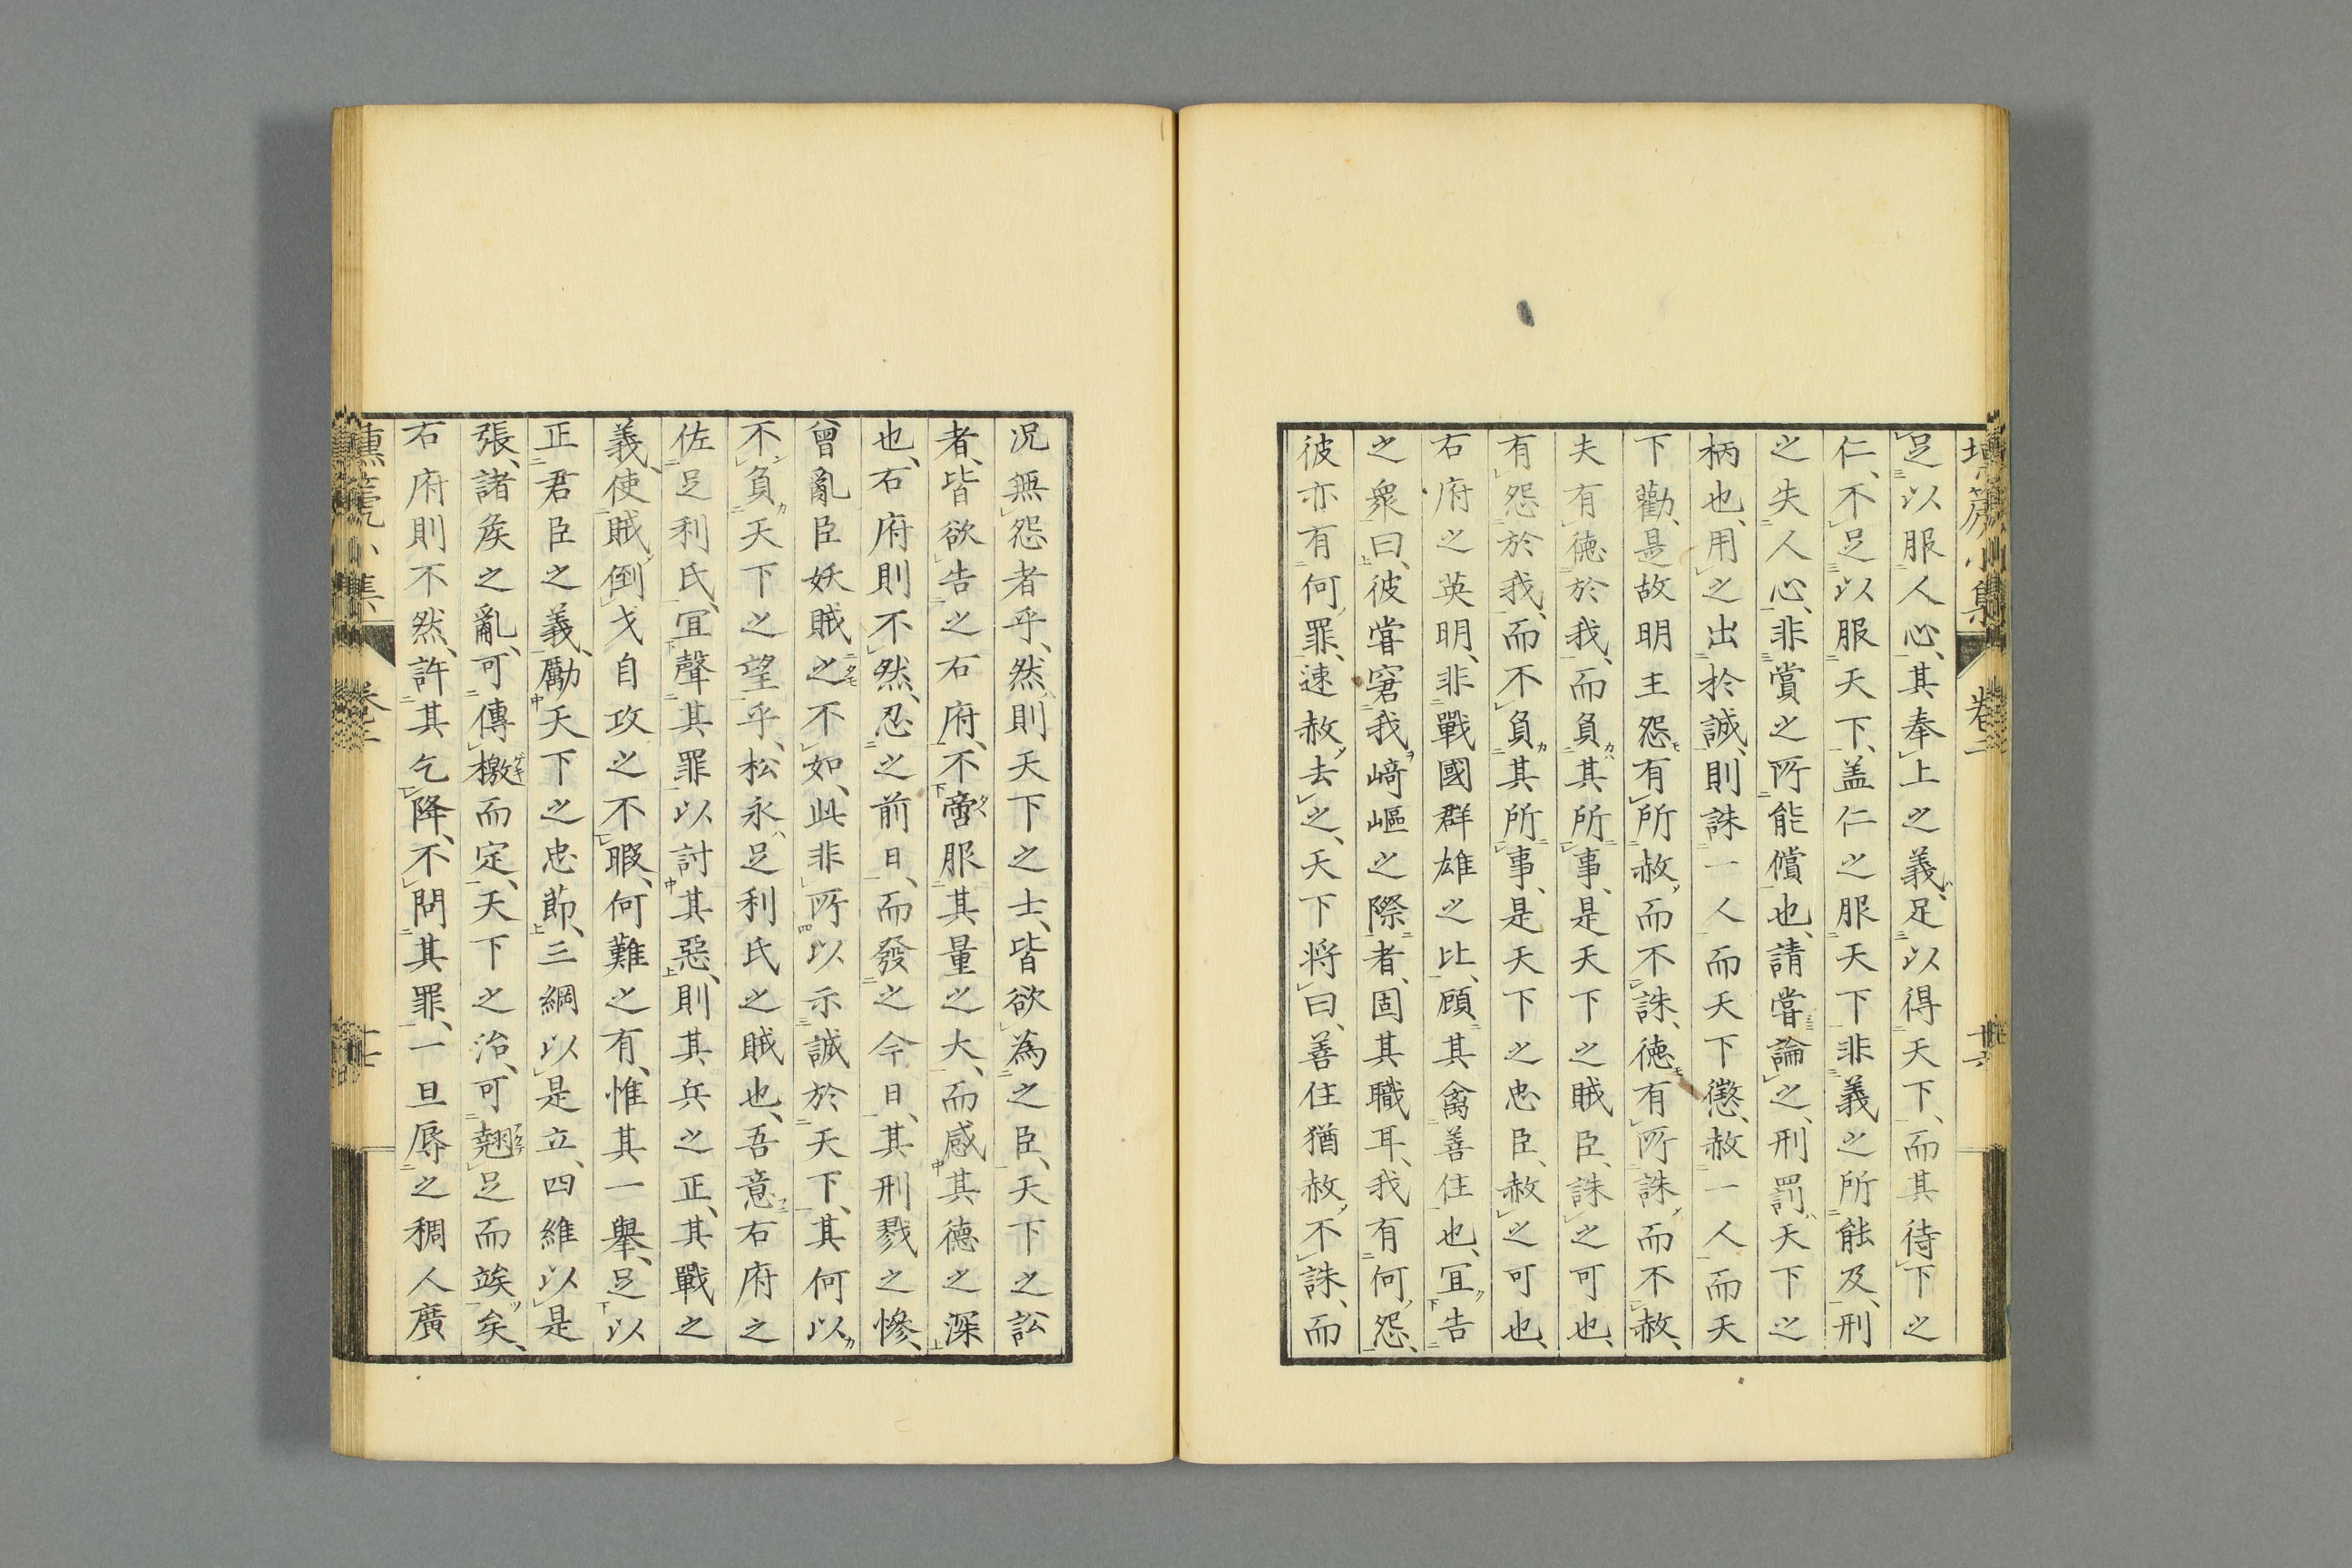 足以服人心、其奉上之義、足以得天下、而其待下之
仁、不足以服天下、盖仁之服天下非義之所能及、刑
之失人心、非賞之所能償也、請嘗論之、刑罰天下之
柄也、用之出於誠、則誅一人而天下懲、赦一人而天
下勸、是故明主怨有所赦而不誅、徳有所誅而不赦、
夫有徳於我、而負其所事、是天下之賊臣、誅之可也、
有怨於我、而不負其所事、是天下之忠臣、赦之可也、
右府之英明、非戰國群雄之比、顧其禽善住也、宜告
之衆曰、彼嘗窘我﨑嶇之際者、固其職耳、我有何怨、
彼亦有何罪、速赦去之、天下将曰、善住猶赦不誅、而
況無怨者乎、然則天下之士、皆欲為之臣、天下之訟
者、皆欲告之右府、不啻服其量之大、而感其德之深
也、右府則不然、忍之前日、而發之今日、其刑戮之慘、
曾亂臣妖賊之不如、此非所以示誠於天下、其何以
不負天下之望乎、松永足利氏之賊也、吾意右府之
佐足利氏、宜聲其罪以討其惡、則其兵之正、其戰之
義、使賊倒戈自攻之不暇、何難之有、惟其一舉、足以
正君臣之義、勵天下之忠節、三綱以是立、四維以是
張、諸矦之亂、可傳檄而定、天下之治、可翹足而竢矣、
右府則不然、許其乞降、不問其罪、一旦辱之稠人廣